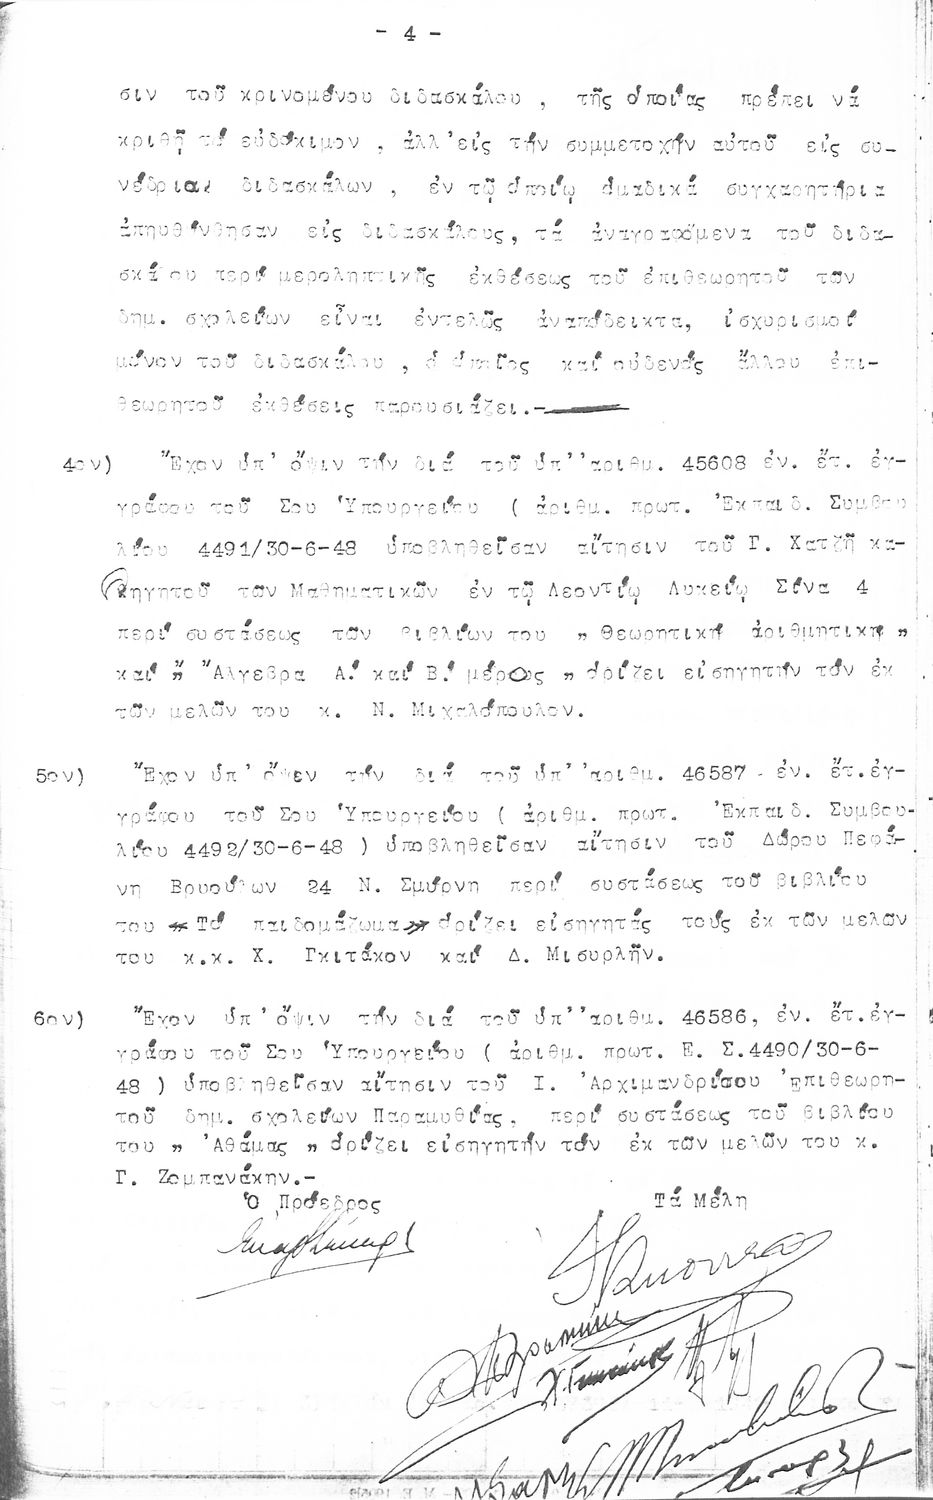 - 4 -
σιν τοῦ κρινομένου διδασκάλου , τῆς ὁποίας πρέπει νά
κριθῇ τό εὐδόκιμον , ἀλλ'εἰς τήν συμμετοχήν αὐτοῦ εἰς συ-
νέδρια διδασκάλων , ἐν τῷ ὁποίῳ ὁμαδικά συγχαρητήρια
ἀπηυθύνθησαν εἰς διδασκάλους, τά ἀναγραφόμενα τοῦ διδα-
σκάλου περί μεροληπτικῆς ἐκθέσεως τοῦ ἐπιθεωρητοῦ τῶν
δημ. σχολείων εἶναι ἐντελῶς ἀναπόδεικτα, ἰσχυρισμοί
μόνον τοῦ διδασκάλου , ὁ ὁποῖος καί οὐδενός ἄλλου ἐπι-
θεωρητοῦ ἐκθέσεις παρουσιάζει.-
4ον) Ἔχον ὑπ' ὄψιν τήν διά τοῦ ὑπ''αριθμ. 45608 ἐν. ἔτ. ἐγ-
γράφου τοῦ Σου Ὑπουργείου ( ἀριθμ. πρωτ. Ἐκπαιδ. Συμβου
λίου 4491/30-6-48 ὑποβληθεῖσαν αἴτησιν τοῦ Γ. Χατζῆ κα-
θηγητοῦ τῶν Μαθηματικῶν ἐν τῷ Λεοντίῳ Λυκείῳ Σίνα 4
περί συστάσεως τῶν βιβλίων του „ Θεωρητική ἀριθμητική „
καί „ Ἄλγεβρα Α! καί Β! μέρους „ ὁρίζει εἰσηγητήν τόν ἐκ
τῶν μελῶν του κ. Ν. Μιχαλόπουλον.
5ον) Ἔχον ὑπ' ὄψεν τήν διά τοῦ ὑπ''αριθμ. 46587 ἐν. ἔτ.ἐγ-
γράφου τοῦ Σου Ὑπουργείου ( ἀριθμ. πρωτ. Ἐκπαιδ. Συμβου-
λίου 4492/30-6-48 ) ὑποβληθεῖσαν αἴτησιν τοῦ Δώρου Πεφά-
νη Βρυούλων 24 Ν. Σμύρνη περί συστάσεως τοῦ βιβλίου
του « Τό παιδομάζωμα» ὁρίζει εἰσηγητάς τούς ἐκ τῶν μελῶν
του κ.κ. Χ. Γκιτάκον καί Δ. Μισυρλῆν.
6ον) Ἔχον ὑπ' ὄψιν τήν διά τοῦ ὑπ''αριθμ. 46586, ἐν. ἔτ.ἐγ-
γράφου τοῦ Σου Ὑπουργείου ( ἀριθμ. πρωτ. Ε. Σ.4490/30-6-
48 ) ὑποβληθεῖσαν αἴτησιν τοῦ Ι. Ἀρχιμανδρίσου Ἐπιθεωρη-
τοῦ δημ. σχολείων Παραμυθίας, περί συστάσεως τοῦ βιβλίου
του „ Ἀθάμας „ ὁρίζει εἰσηγητήν τόν ἐκ τῶν μελῶν του κ.
Γ. Ζομπανάκην.-
Ὁ Πρόεδρος Τά Μέλη